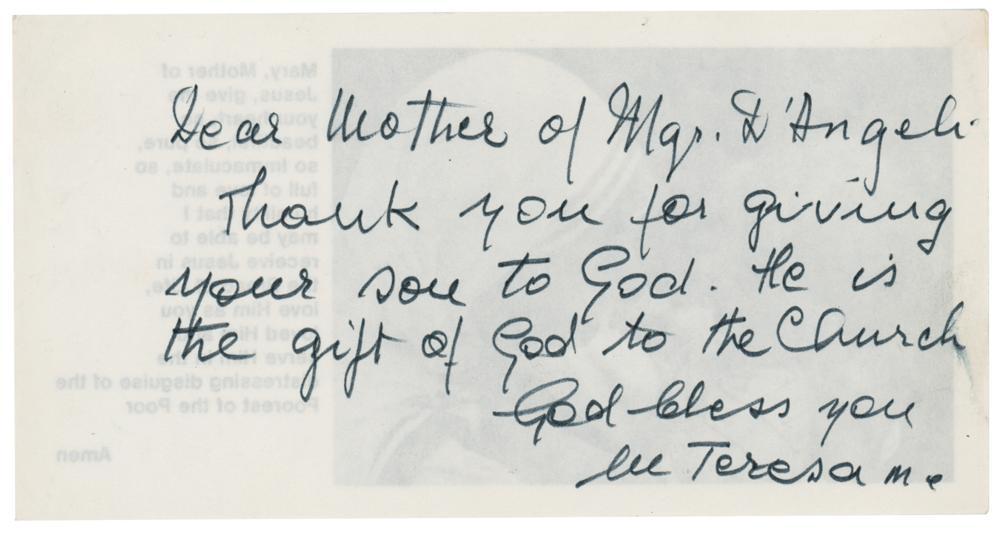 Dear Mother of Mgr. D'Angeli
Thank you for giving
your son to God. He is
the gift of God to the Church
God bless you
M Teresa m.c
Mary, Mother of
Jesus, give me
your heart, so
beautiful, so pure,
so Immaculate, so
full of love and
that I
may be able to
receive Jesus in
the
love Him as you
loved Him and
serve Him in the
distressing disguise of the
Poorest of the Poor
Amen